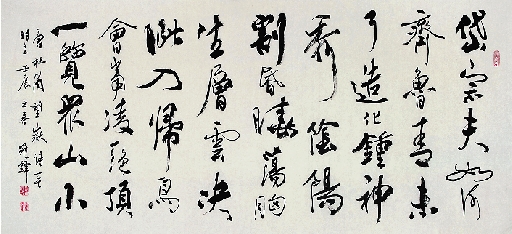 岱宗夫如何
齊魯青未
了造化鍾神
秀陰陽
割昏曉蕩胸
生層雲決
眦入歸鳥
會當凌絕頂
一覽眾山小
唐杜甫望嶽詩一首
壬辰之春